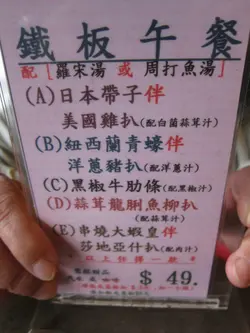 鐵板午餐
配[羅宋湯 或 周打魚湯]
(A)日本帶子伴
美國雞扒(配白菌蒜茸汁)
(B)紐西蘭青蠔伴
洋蔥豬扒(配洋蔥汁)
(C)黑椒牛肋條(配黑椒汁)
(D)蒜茸龍脷魚柳扒
(配蒜茸汁)
(E)串燒大蝦皇伴
莎地亞什扒(配肉汁)
以上任擇一款
$ 49.